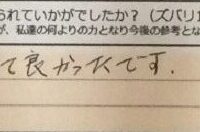 られていかがでしたか?(ズバリ1
が、私達の何よりの力となり今後の参考とな
て良かったです.